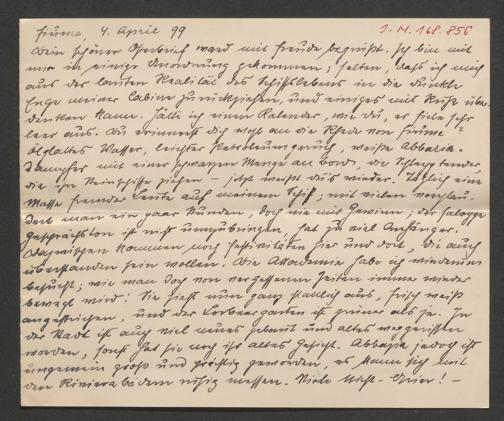 Fiume, 4. April 99
J. N. 168.856
Dein schöner Osterbrief ward mit Freude begrüßt. Ich bin mit
mir in einige Unordnung gekommen; selten, daß ich mich
aus der lauten Realität des Schiffslebens in die dunkle
Enge meiner Cabine zurückziehen, und einiges mit Ruhe über-
denken kann. Hätte ich einen Kalender, wie du, er fiele sehr
leer aus. Du erinnerst dich wohl an die Rhede von Fiume?
Ölglattes Wasser, leichter Petroleumgeruch, weiße
Dampfer mit einer schwarzen Menge an Bord, die Schlepptender,
die ihre ziehen – jetzt weißt du's wieder. Täglich eine
Masse fremder Leute auf meinem Schif; mit vielen verplau-
dert man ein paar Stunden, doch nie mit Gewinn; der saloppe
Gesprächston ist nicht umzubringen, hat zu viel Anhänger.
Dazwischen kommen noch Festivitäten hier und dort, die auch
überstanden sein wollen. Die Akademie habe ich wiederum
besucht; wie man doch von vergessenen Zeiten immer wieder
bewegt wird! Sie sieht nun ganz stattlich aus, frisch weiß
angestrichen, und der Lorbeergarten ist grüner als je. In
der Stadt ist auch viel neues gebaut und altes weggerissen
worden, sonst hat sie noch ihr altes Gesicht. Abbazia jedoch ist
ungemein groß und prächtig geworden, es kann sich mit
den Rivierabädern ruhig messen. Viele